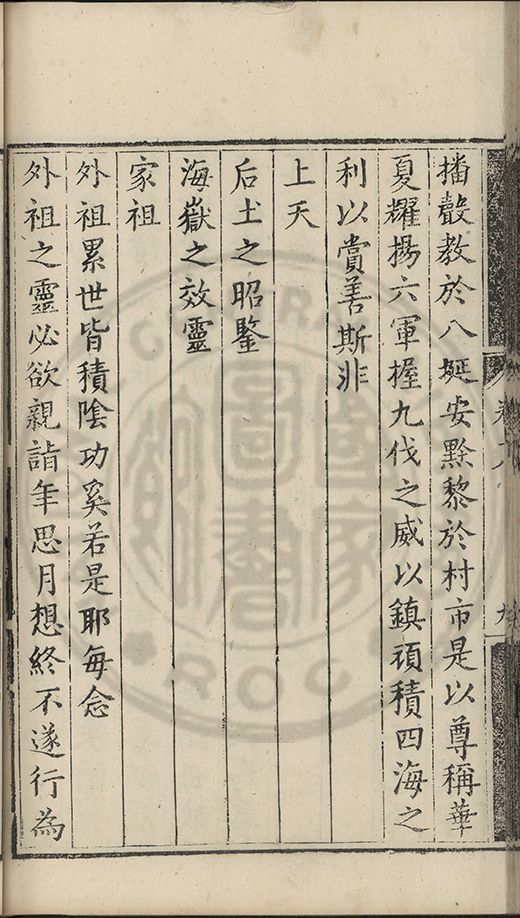 播聲教於八埏安黔黎於村市是以尊稱華
夏耀揚六軍握九伐之威以鎮頑積四海之
利以賞善斯非
上天
后土之昭鑒
海嶽之效靈
家祖
外祖累世皆積陰功奚若是耶每念
外祖之靈必欲親詣年思月想終不遂行為